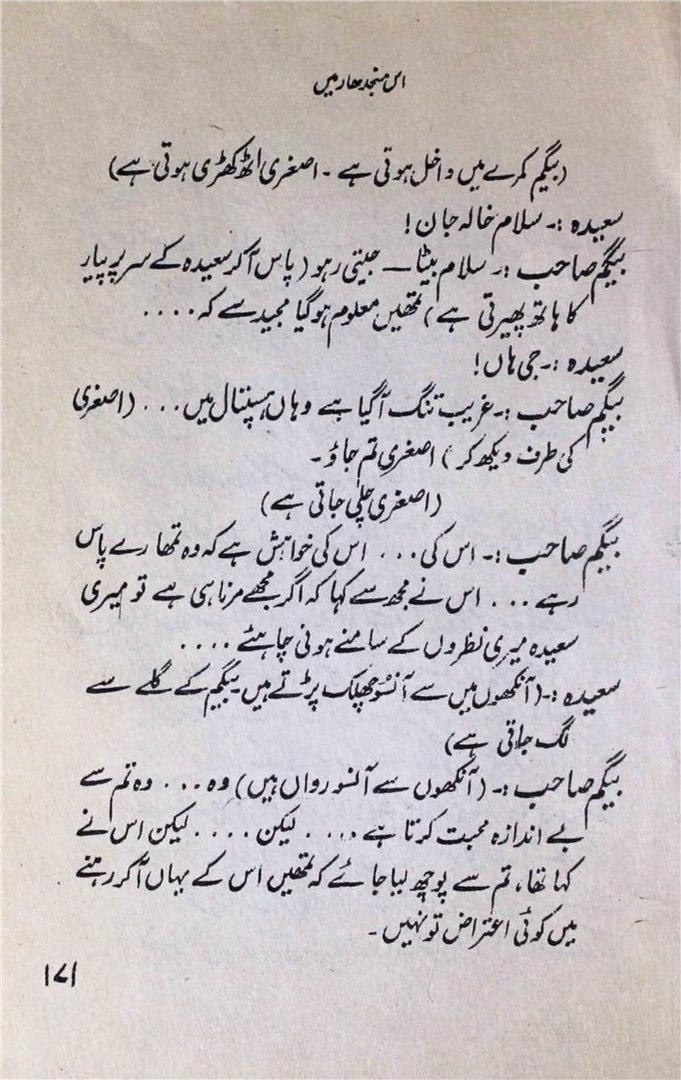 اس منجدھار میں
(بیگم کمرے میں داخل ہوتی ہے ۔ اصغری اٹھ کھڑی ہوتی ہے)
سعیدہ :۔ سلام خالہ جان !
بیگم صاحب :۔ سلام بیٹا — جیتی رہو ( پاس آکر سعیدہ کے سر پر پیار
کا ہاتھ پھیرتی ہے ) تمھیں معلوم ہوگیا مجید سے کہ ....
سعیدہ :۔ جی ہاں !
بیگم صاحب :۔ غریب تنگ آگیا ہے وہاں ہسپتال میں ... (اصغری
کی طرف دیکھ کر ) اصغری تم جاؤ ۔
(اصغری چلی جاتی ہے)
بیگم صاحب :۔ اس کی ... اس کی خواہش ہے کہ وہ تمھارے پاس
رہے ... اس نے مجھ سے کہا کہ اگر مجھے مرنا ہی ہے تو میری
سعیدہ میری نظروں کے سامنے ہونی چاہئے ....
سعیدہ :۔ (آنکھوں میں سے آنسو چھلک پڑتے ہیں ۔ بیگم کے گلے سے
لگ جاتی ہے)
بیگم صاحب :۔ (آنکھوں سے آنسو رواں ہیں) وہ ... وہ تم سے
بے اندازہ محبت کرتا ہے .... لیکن .... لیکن اس نے
کہا تھا، تم سے پوچھ لیا جائے کہ تمھیں اس کے یہاں آکر رہنے
میں کوئی اعتراض تو نہیں ۔
۱۷۱